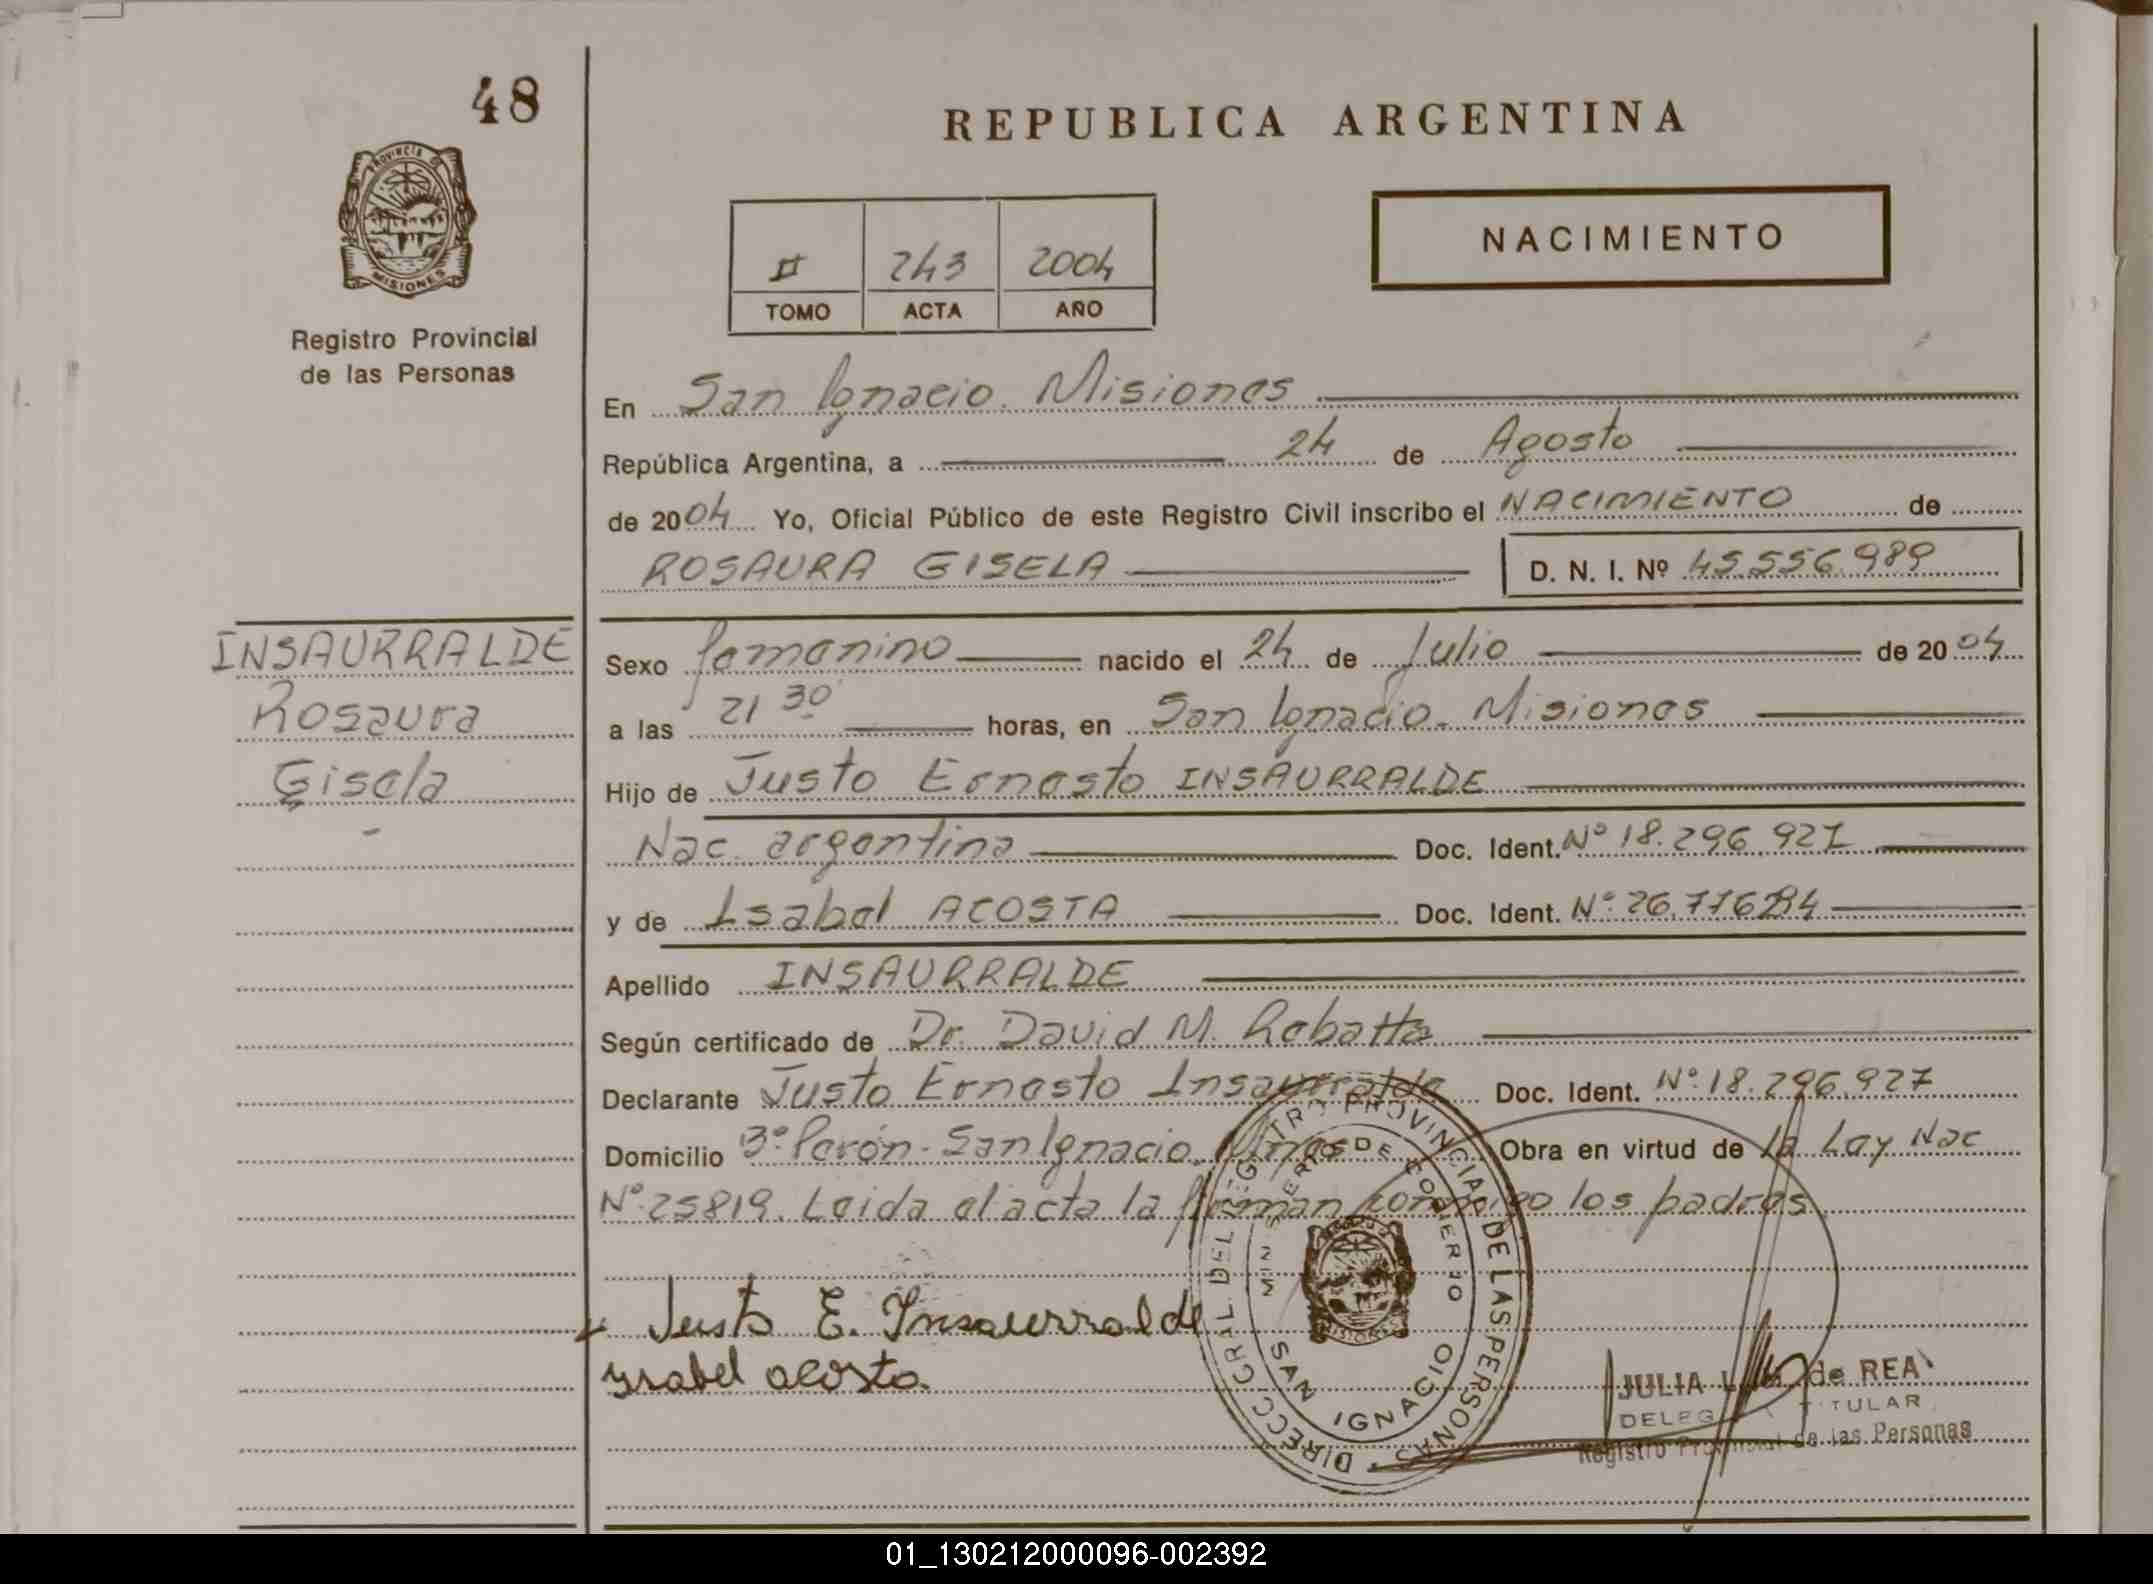 48
REPUBLICA ARGENTINA
PROVINCIA DE
MISIONES
Registro Provincial
de las Personas
II 243 2004
TOMO ACTA AÑO
NACIMIENTO
En San Ignacio. Misiones
República Argentina, a 24 de Agosto
de 2004 Yo, Oficial Público de este Registro Civil inscribo el NACIMIENTO de
ROSAURA GISELA D. N. I. Nº 45.556.989
INSAURRALDE
Rosaura
Gisela
Sexo femenino nacido el 24 de Julio de 2004
a las 21 30 horas, en San Ignacio. Misiones
Hijo de Justo Ernesto INSAURRALDE
Nac. argentina Doc. Ident. Nº 18.296.927
y de Isabel ACOSTA Doc. Ident. Nº
Apellido INSAURRALDE
Según certificado de Dr. David M. Rebatta
Declarante Justo Ernesto Insaurralde Doc. Ident. Nº 18.296.927
Domicilio Bº Perón - San Ignacio. Mnes Obra en virtud de la Ley Nac
Nº 25819. Leida el acta la firman conmigo los padres.
Justo E. Insaurralde
Ysabel acosta.
DIRECC GRAL. DEL REGISTRO PROVINCIAL DE LAS PERSONAS
MINISTERIO DE GOBIERNO
MISIONES
SAN IGNACIO
JULIA de REA
TITULAR
Registro Provincial de las Personas
01_130212000096-002392